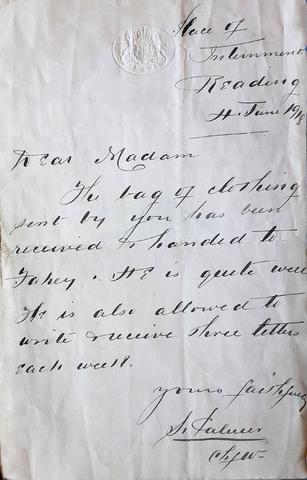 Place of
Internment
Reading
4 June 1918
Dear Madam
The bag of clothing
sent by you has been
received & handed to
Fahey. He is quite well
He is also allowed to
write & receive three letters
each week.
Yours faithfully